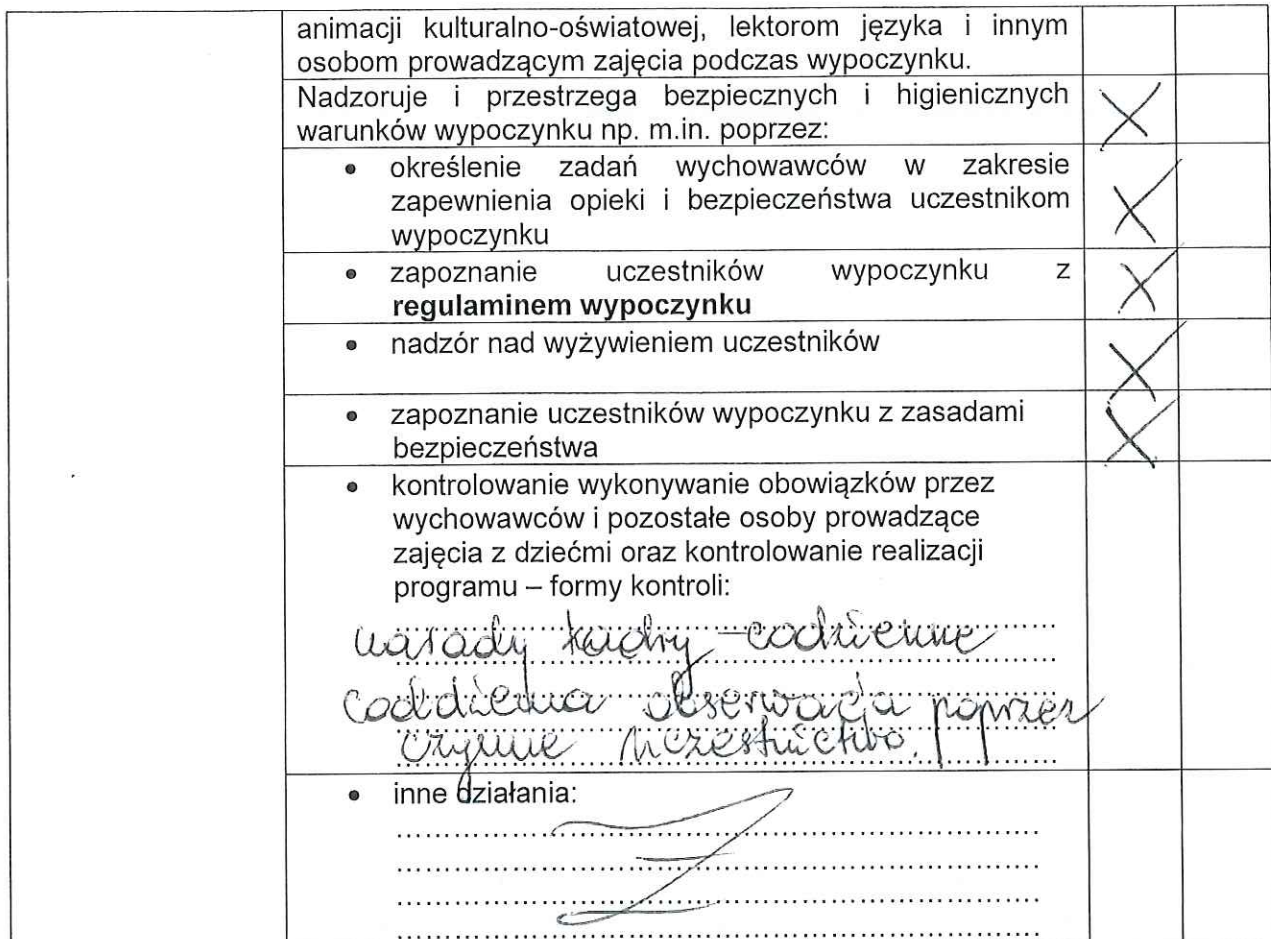 animacji kulturalno-oświatowej, lektorom języka i innym
osobom prowadzącym zajęcia podczas wypoczynku.
Nadzoruje i przestrzega bezpiecznych i higienicznych
warunków wypoczynku np. m.in. poprzez:
• określenie zadań wychowawców w zakresie
zapewnienia opieki i bezpieczeństwa uczestnikom
wypoczynku
• zapoznanie uczestników wypoczynku z
regulaminem wypoczynku
• nadzór nad wyżywieniem uczestników
• zapoznanie uczestników wypoczynku z zasadami
bezpieczeństwa
• kontrolowanie wykonywanie obowiązków przez
wychowawców i pozostałe osoby prowadzące
zajęcia z dziećmi oraz kontrolowanie realizacji
programu – formy kontroli:
narady kadry - codzienne
codzienna obserwacja poprzez
czynne uczestnictwo.
• inne działania: